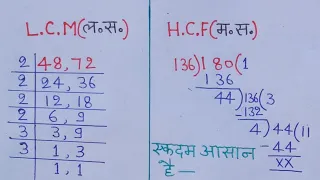 L.C.M(ल.स.)
2 | 48, 72
2 | 24, 36
2 | 12, 18
2 | 6, 9
3 | 3, 9
3 | 1, 3
1, 1
H.C.F(म.स.)
136)180(1
136
44)136(3
-132
4)44(11
-44
XX
एकदम आसान
है —